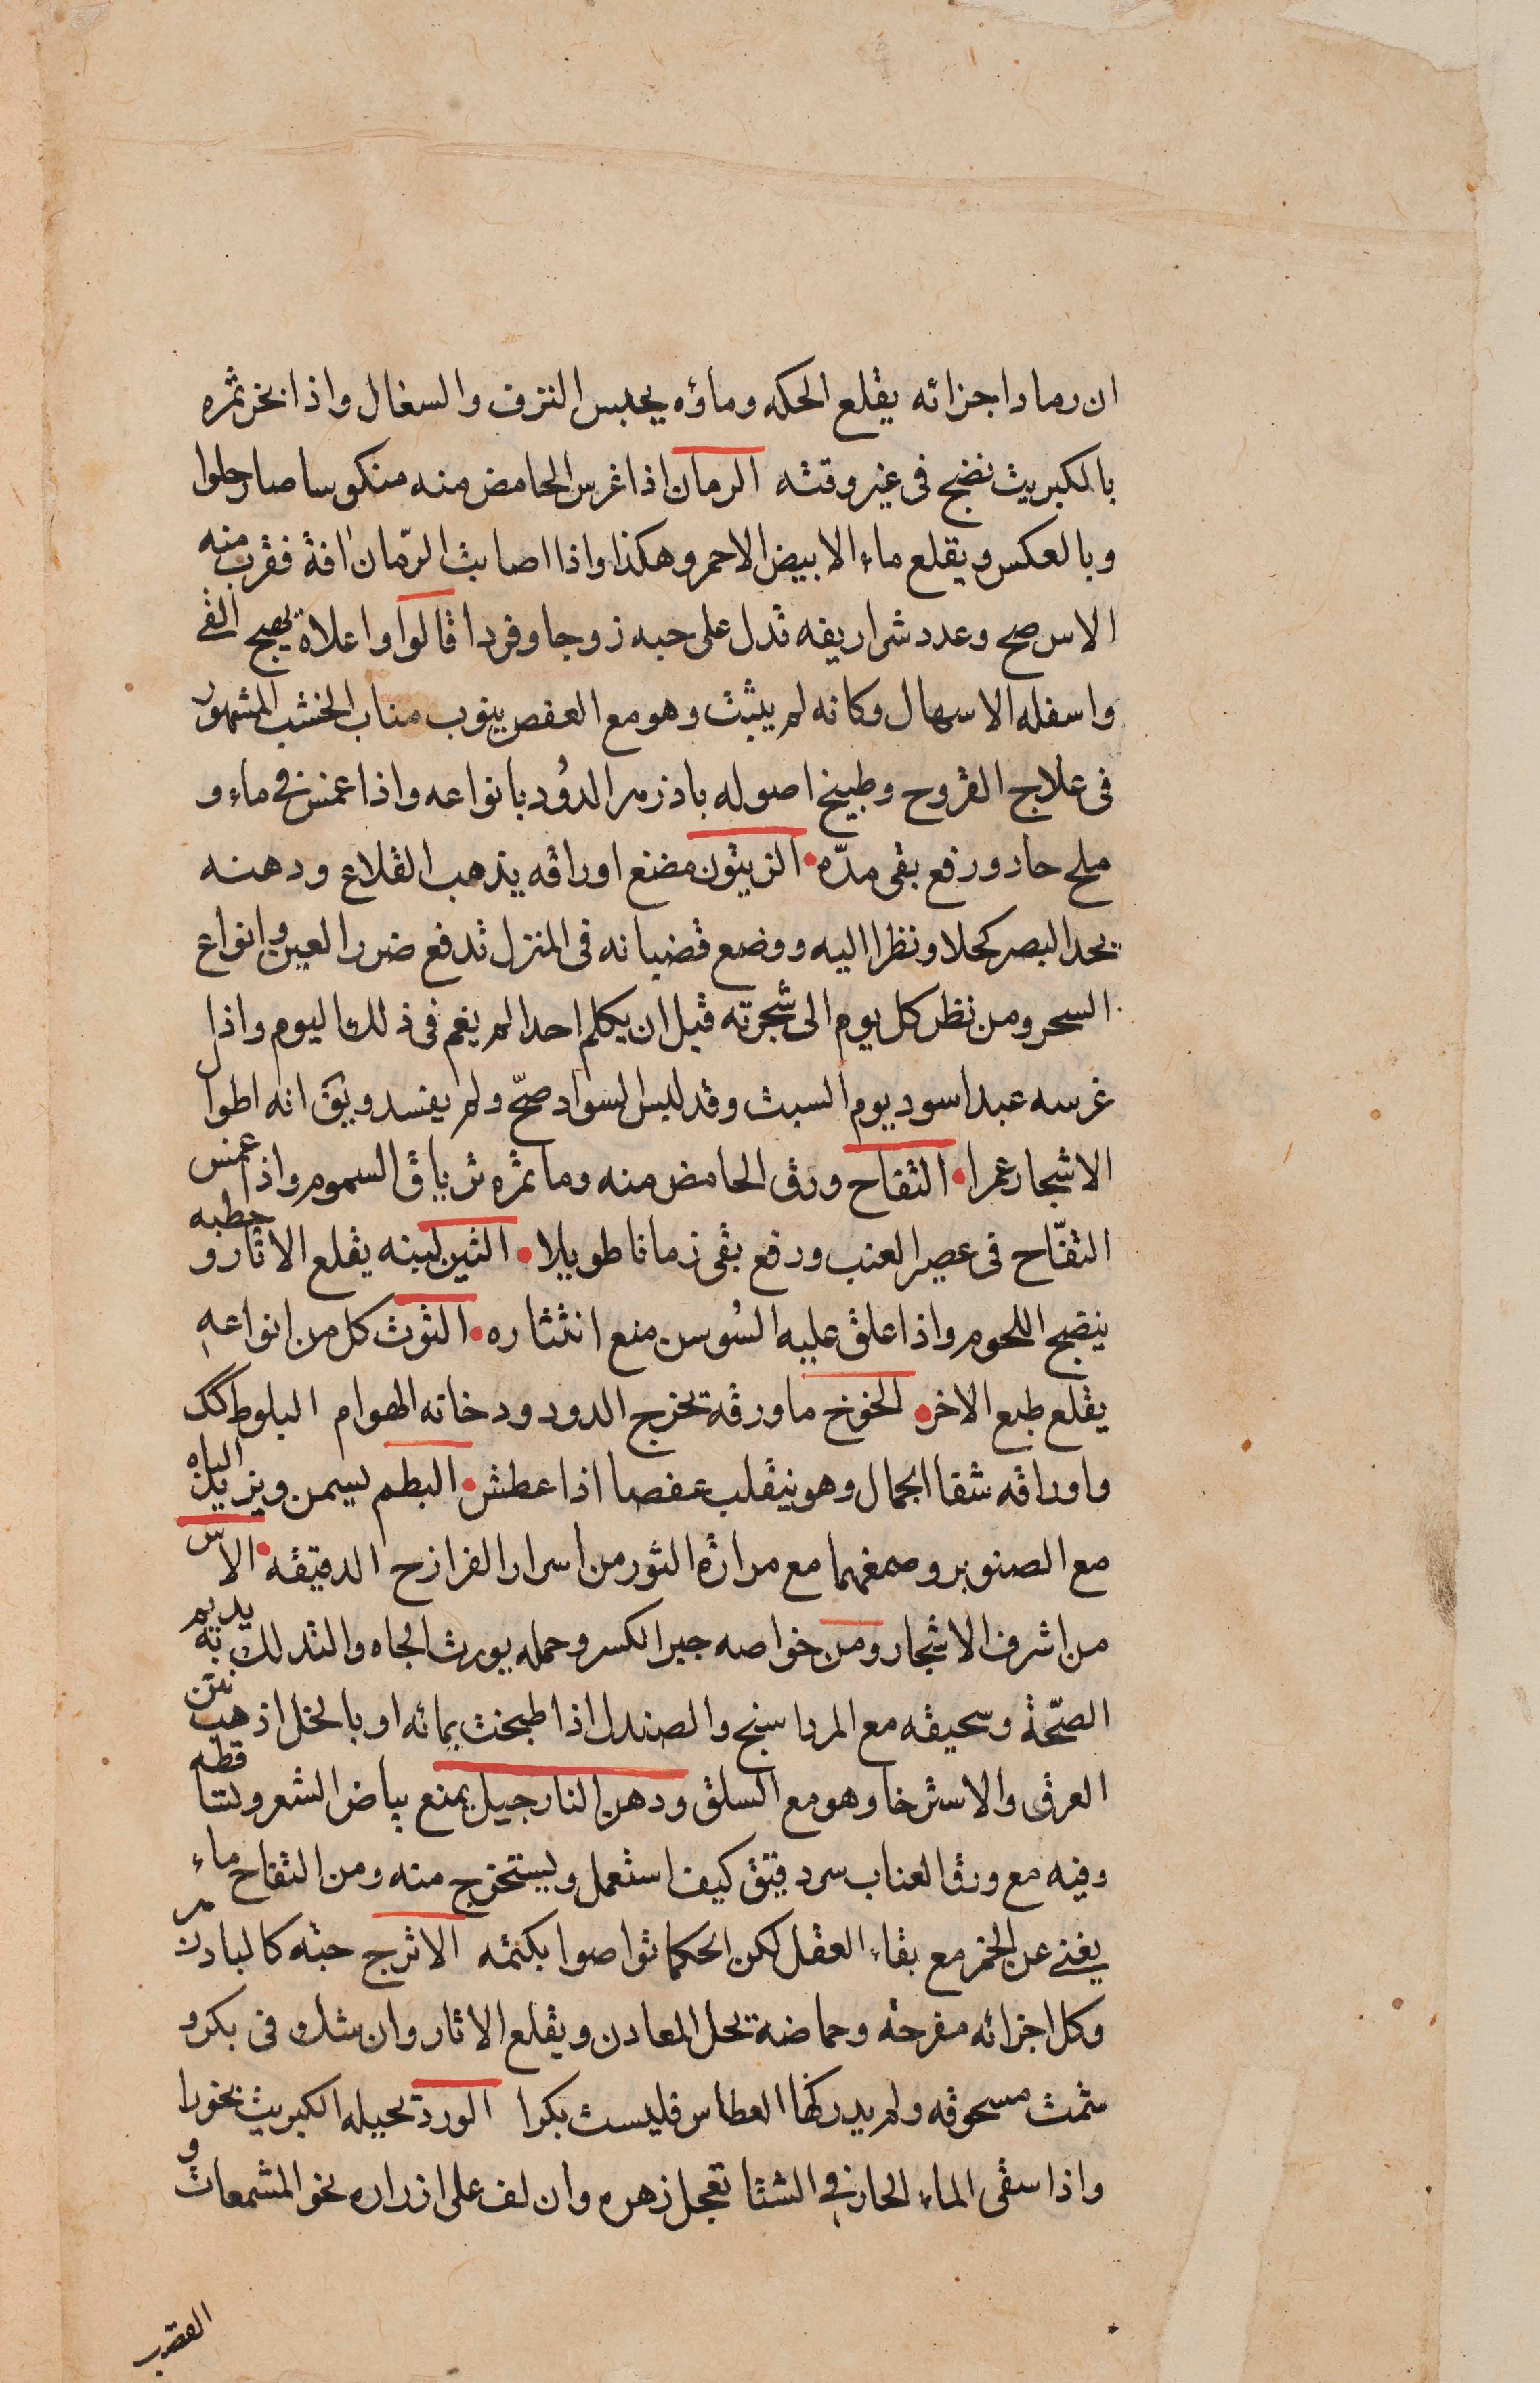 ان رماد اجزائه يقلع الحكه وماؤه يحبس النزف والسغال واذا بخر ثمره
بالكبريت نضج فى غير وقته الرمان اذا غرس الحامض منه منكوسا صار حلوا
وبالعكس ويقلع ماء الابيض الاحمر وهكذا واذا اصابت الرّمان افة فقرب منه
الاس صح وعدد شراريفه تدل على حبه زوجا وفردا قالوا واعلاه يهيج القى
واسفله الاسهال وكانه لم يثبت وهو مع العفص ينوب مناب الخشب المشهور
فى علاج القروح وطبيخ اصوله باذزهر الدُود بانواعه واذا غمس فى ماء و
ملح حار ورفع بقى مدّه الزيتون مضغ اوراقه يذهب القلاع ودهنه
يحد البصر كحلا ونظرا اليه ووضع قضبانه فى المنزل تدفع ضرر العين وانواع
السحر ومن نظر كل يوم الى شجرته قبل ان يكلم احدا لم يغم فى ذلك اليوم واذا
غرسه عبد اسود يوم السبت وقد لبس السواد صحّ ولم يفسد ويق انه اطول
الاشجار عمرا التفاح ورق الحامض منه وما ثمره ترياق السموم واذا غمس
التفّاح فى عصير العنب ورفع بقى زمانا طويلا التين لبنه يقلع الاثار و حطبه
ينضج اللحوم واذا علق عليه السُوسن منع انتثاره التوت كل من انواعه
يقلع طبع الاخر الخوخ ما ورقه تخرج الدود ودخانه الهوام البلوط كك
واوراقه شفا الجمال وهو ينقلب عفصا اذا عطش البطم يسمن ويزيد الباه
مع الصنوبر وصمغهما مع مرارة الثور من اسرار الفرازح الدقيقه الاس
من اشرف الاشجار ومن خواصه جبر الكسر وحمله يورث الجاه والتدلك به يديم
الصّحة وسحيقه مع المرداسنج والصندل اذا طبخت بمائه او بالخل اذهب نتن
العرق والاسترخا وهو مع السلق ودهن النارجيل يمنع بياض الشعر وتساقطه
وفيه مع ورق العناب سر دقيق كيف استعمل ويستخرج منه ومن التفاح ماء
يغنى عن الخمر مع بقاء العقل لكن الحكما تواصوا بكتمه الاترج حبّه كالبادزهر
وكل اجزائه مفرحة وحماضه يحل المعادن ويقلع الاثار وان شك فى بكر و
شمت مسحوقه ولم يدركها العطاس فليست بكرا الورد تحييله الكبريت بخورا
واذا سقى الماء الحار فى الشتا تعجل زهره وان لف على ازراره نحو المشمعات و
العقرب